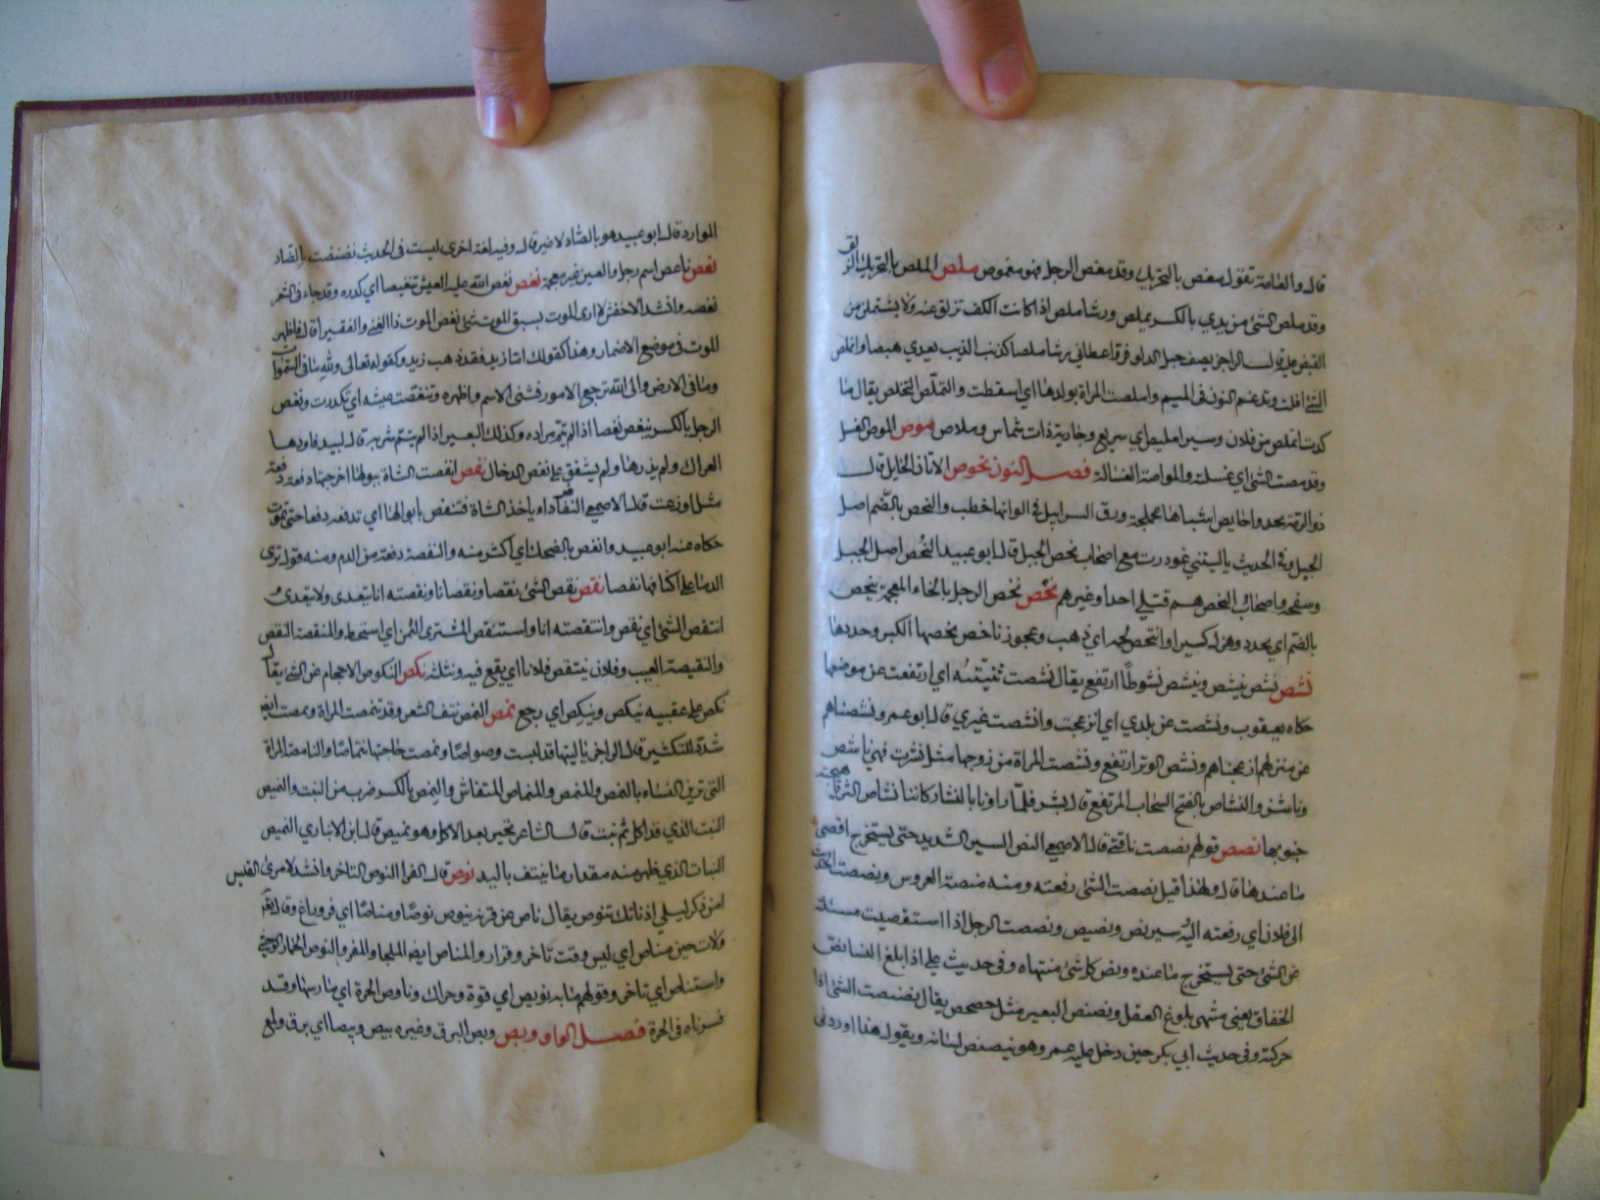 قال والعامة تقول مغص بالتحريك وقد مغص الرجل فهو ممغوص ملص الملص بالتحريك الزلق
وقد ملص الشئ من يدي بالكسر يملص ورشا ملص اذا كانت الكف تزلق عنه ولا يستمكن من
القبض عليه قال الراجز يصف حبل الدلو فر واعطاني رشا ملصا كذنب الذيب يعدي هبصا وانملص
الشئ افلت وتدغم النون في الميم واملصت المراة بولدها اي اسقطت والتملص التخلص يقال ما
كدت اتملص من فلان وسير امليص اي سريع وجارية ذات شماس وملاص موص الموص الغسل
وقد مصت الشئ اي غسلته والمواصة الغسالة فصل النون نحوص الاتان الحايل قال
ذو الرمة يحدو نحايص اشباها محملجة ورق السرابيل في الوانها خطب والنحص بالضم اصل
الجبل وفي الحديث يا ليتني غودرت مع اصحاب نحص الجبل قال ابو عبيد النحص اصل الجبل
وسفحه واصحاب النحص هم قتلى احد او غيرهم نخص نخص الرجل بالخاء المعجمة ينخص
بالضم اي يخدد وهزل كبرا وانتخص لحمه اي ذهب وعجوز ناخص نخصها الكبر وخددها
نشص نشص ينشص وينشص نشوصا ارتفع يقال نشصت ثنيته اي ارتفعت عن موضعها
حكاه يعقوب ونشصت عن بلدي اي انزعجت وانشصت غيري قال ابو عمرو نشصناهم
عن منزلهم ازعجناهم ونشص الوتر ارتفع ونشصت المراة من زوجها مثل نشزت فهي ناشص
وناشز والنشاص بالفتح السحاب المرتفع قال بشر فلما راونا بالنسار كاننا نشاص الثريا هيجته
جنوبها نصص قولهم نصصت ناقتي قال الاصمعي النص السير الشديد حتى يستخرج اقصى
ما عندها قال ولهذا قيل نصصت الشئ رفعته ومنه منصة العروس ونصصت الحديث
الى فلان اي رفعته اليه وسير نص ونصيص ونصصت الرجل اذا استقصيت مسئلته
عن الشئ حتى يستخرج ما عنده ونص كل شئ منتهاه وفي حديث علي اذا بلغ النساء نص
الحقاق يعني منتهى بلوغ العقل ونصنص البعير مثل حصحص يقال نصنصت الشئ اذا
حركته وفي حديث ابي بكر حين دخل عليه عمر وهو ينصنص لسانه ويقول هذا اوردني
الموارد قال ابو عبيد هو بالصاد لا غير قال وفيه لغة اخرى ليست في الحديث نضنضت بالضاد
نعص ناعص اسم رجل والعين غير معجمة نغص نغص الله عليه العيش تنغيصا اي كدره وقد جاء في الشعر
نغصه وانشد الاخفش لا ارى الموت يسبق الموت شئ نغص الموت ذا الغنى والفقيرا قال فاظهر
الموت في موضع الاضمار وهذا كقولك اما زيد فقد ذهب زيد وكقوله تعالى ولله ما في السموات
وما في الارض والى الله ترجع الامور فثنى الاسم واظهره وتنغصت عيشه اي تكدرت ونغص
الرجل بالكسر ينغص نغصا اذا لم يتم مراده وكذلك البعير اذا لم يتم شربه قال لبيد فاوردها
العراك ولم يذدها ولم يشفق على نغص الدخال نفص انفصت الشاة ببولها اخرجته دفعة دفعة
مثل اوزعت قال الاصمعي النفاص داء ياخذ الشاة فتنفص بابوالها اي تدفعه دفعا حتى تموت
حكاه عنه ابو عبيد وانفص بالضحك اي اكثر منه والنفصة دفعة من الدم ومنه قوله ترى
الدما على اكتافها نفصا نقص نقص الشئ نقصا ونقصانا ونقصته انا يتعدى ولا يتعدى
انتقص الشئ اي نقص وانتقصته انا واستنقص المشتري الثمن اي استحط والمنقصة النقص
والنقيصة العيب وفلان ينتقص فلانا اي يقع فيه ويثلبه نكص النكوص الاحجام عن الشئ يقال
نكص على عقبيه ينكص وينكص اي رجع نمص النمص نتف الشعر وقد تنمصت المراة ونمصت ايضا
شدد للتكثير قال الراجز يا ليتها قد لبست وصواصا ونمصت حاجبها تنماصا والنامصة المراة
التي تزين النساء بالنمص والمنمص والمنماص المنقاش والنمص بالكسر ضرب من النبت والنميص
النبت الذي قد اكل ثم نبت قال الشاعر تجبر بعد الاكل وهو نميص قال ابن الانباري النميص
النبات الذي ظهر منه مقدار ما ينتف باليد نوص قال الفرا النوص التاخر وانشد لامرئ القيس
امن ذكر ليلى اذ ناتك تنوص يقال ناص عن قرنه ينوص نوصا ومناصا اي فر وراغ وقال تعالى
ولات حين مناص اي ليس وقت تاخر وقرار والمناص ايضا الملجا والمفر والنوص الحمار الوحشي
واستناص اي تاخر وقولهم ما به نويص اي قوة وحراك وناوص الجرة اي مارسها وقد
فسرناه في الجرة فصل الواو وبص وبص البرق وغيره يبص وبيصا اي برق ولمع